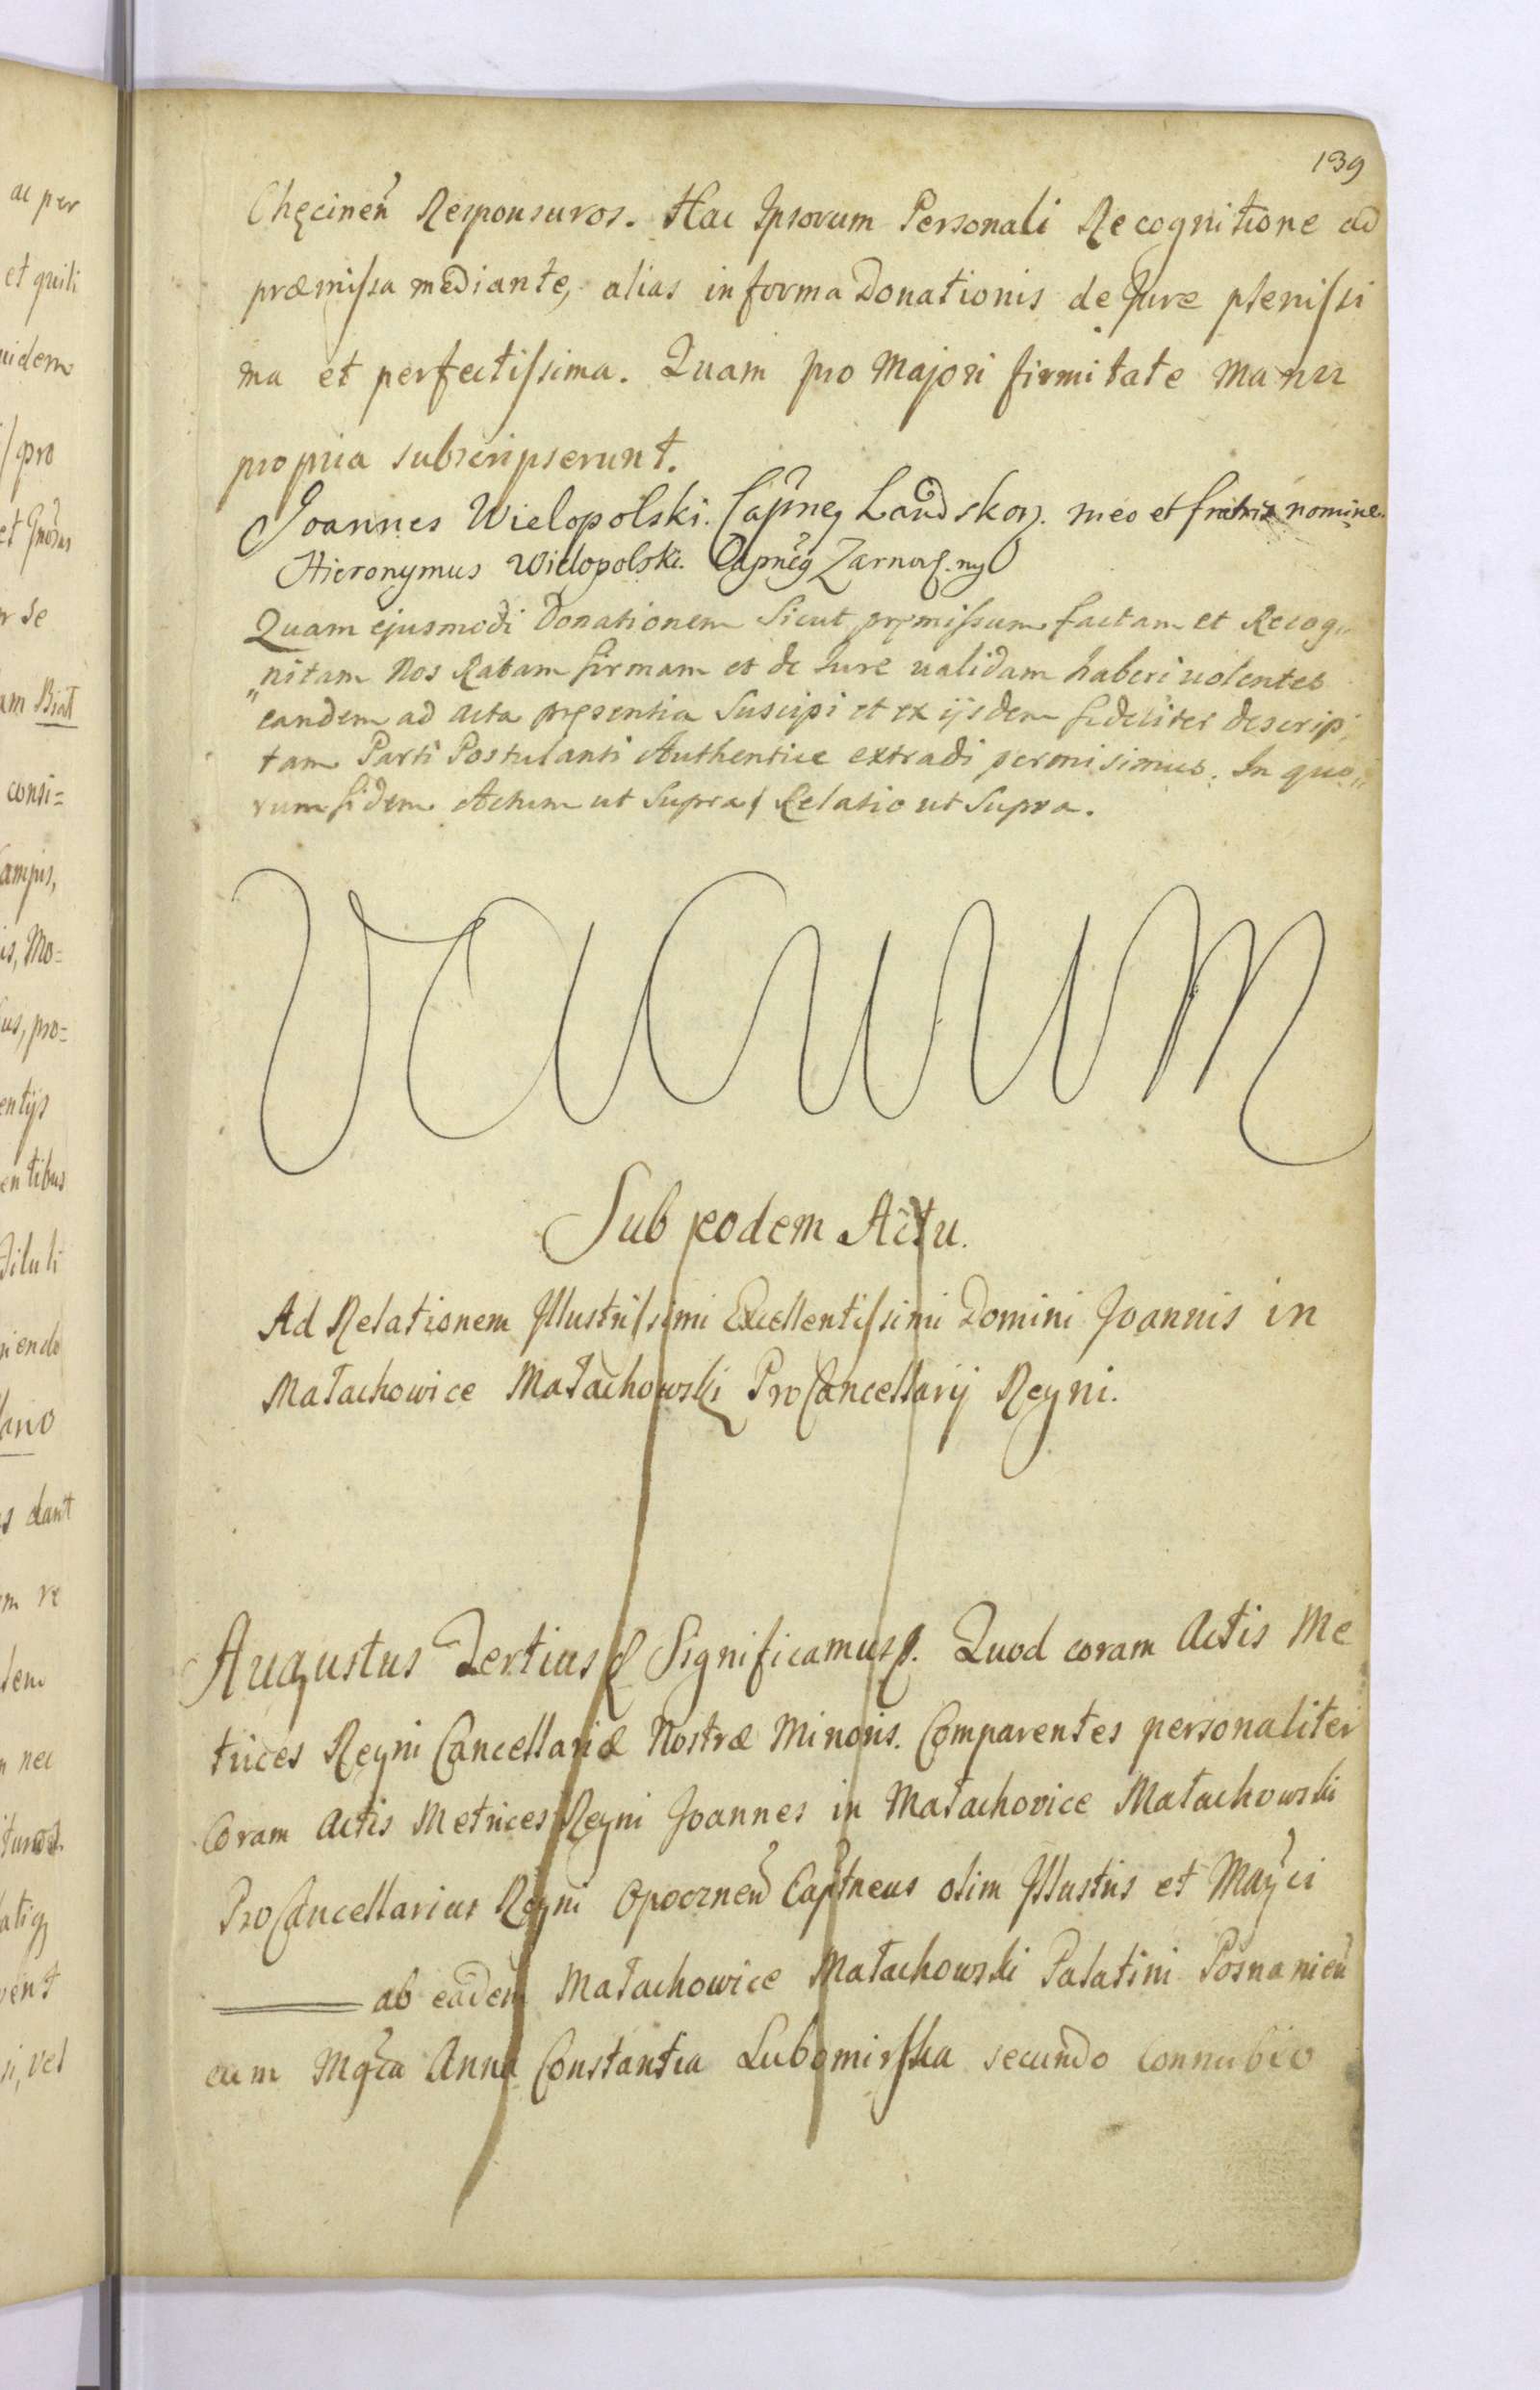 139
Chęcinen̄ Responsuros. Hac Ipsorum Personali Recognitione ad
præmissa mediante, alias in forma Donationis de Jure plenissi
ma et perfectissima. Quam pro Majori firmitate Manu
propria subscripserunt.
Joannes Wielopolski. Capneg Landskor. meo et fratris nomine.
Hieronymus Wielopolski. Capneg
Quam ejusmodi Donationem Sicut pręmissum factam et Recog„
„nitam Nos Ratam firmam et de Jure validam haberi volentes
eandem ad Acta pręsentia Suscipi et ex ijsdem fideliter descrip„
tam Parti Postulanti Authentice extradi permisimus. In quo„
rum fidem Actum ut Supra / Relatio ut Supra.
Vacuum
Sub eodem Actu.
Ad Relationem Illustrissimi Excellentissimi Domini Joannis in
Małachowice Małachowski ProCancellarij Regni.
Augustus Tertius Significamus. Quod coram Actis Me
trices Regni Cancellariæ Nostræ Minoris. Comparentes personaliter
Coram Actis Metrices Regni Joannes in Małachovice Małachowski
ProCancellarius Regni Opocznen̄ Captneus olim Illustris et Magci
ab eadem Małachowice Małachowski Palatini Posnanien̄
cum Mgca Anna Constantia Lubomirska secundo connubio
ac per
et quili
uidem
pro
et
r se
am
consi=
ampis,
is, Mo=
us, pro=
entijs
entibus
Tituli
niendo
s dant
m re
dem
n nec
vent
i, vel